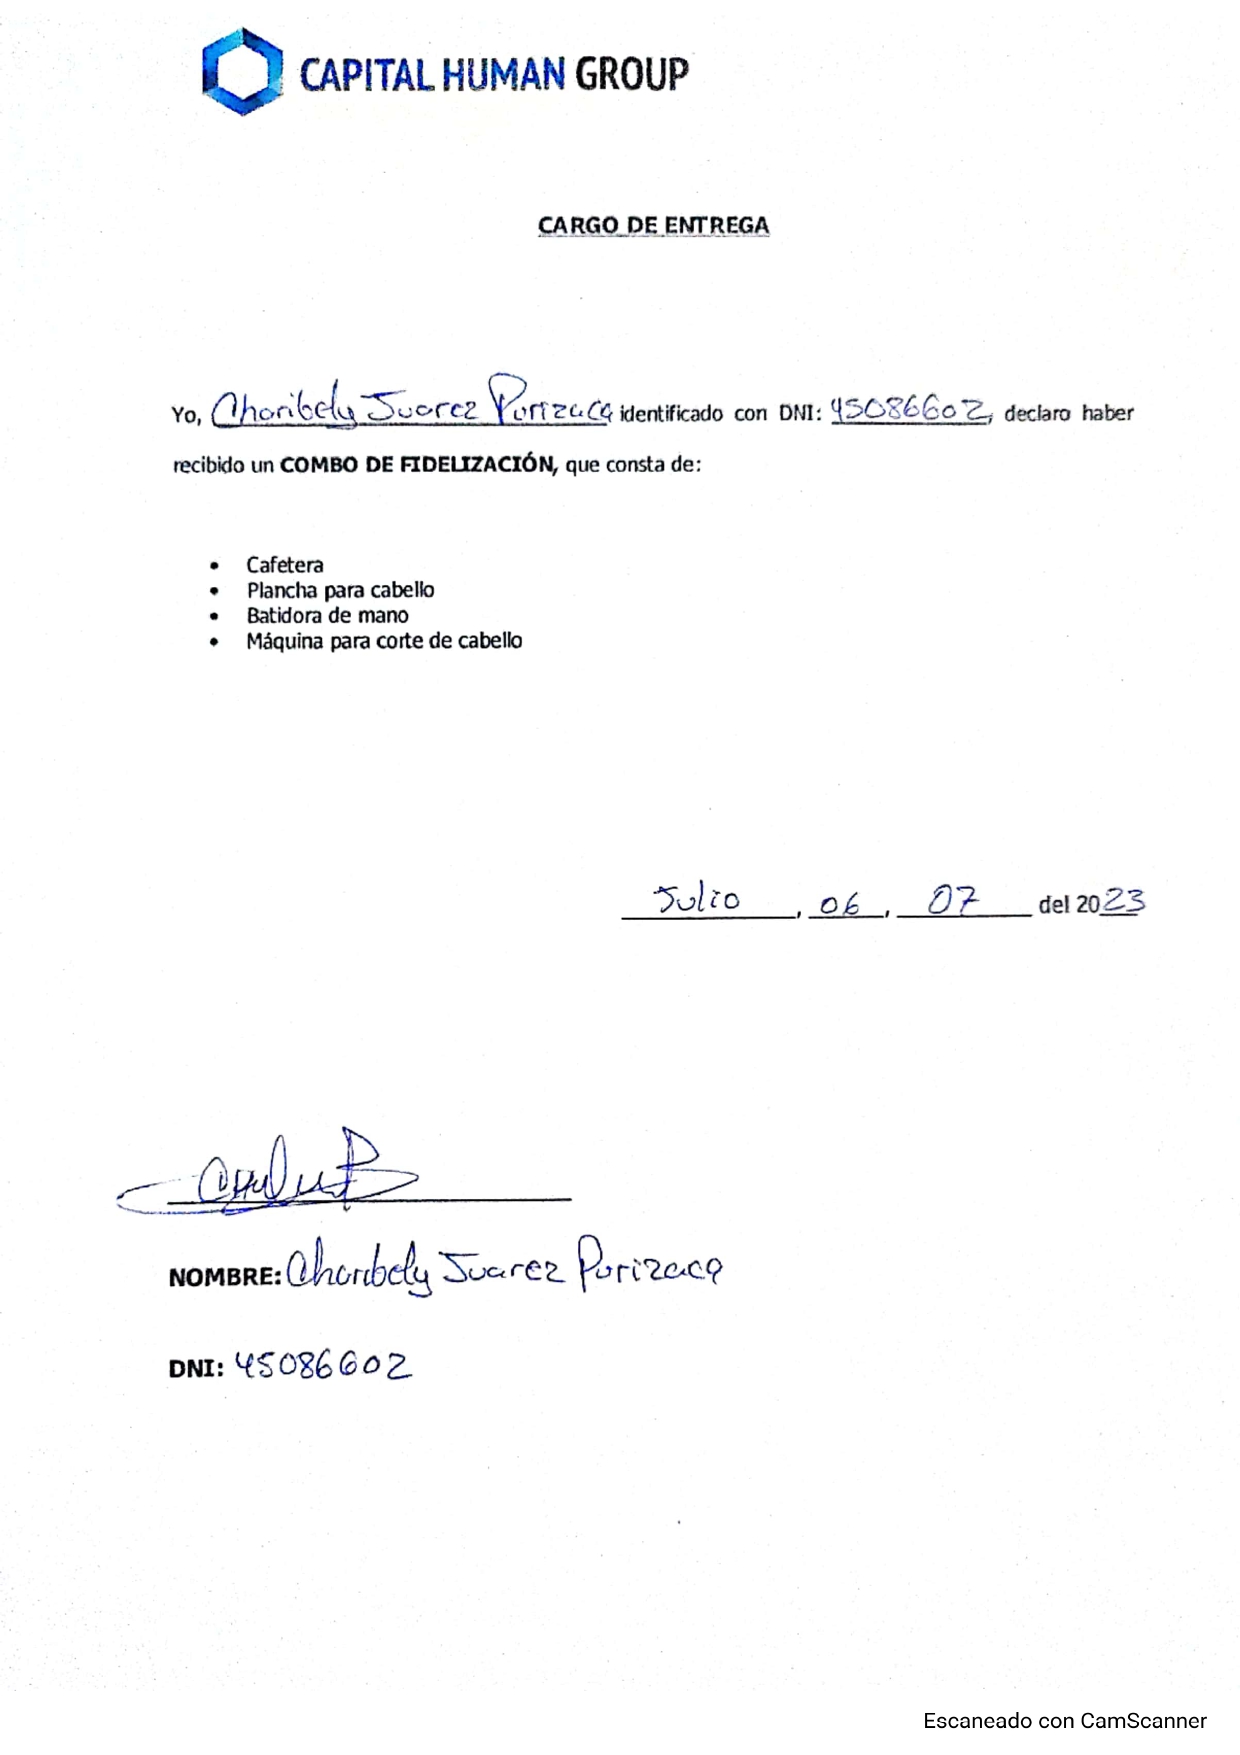 CAPITAL HUMAN GROUP
CARGO DE ENTREGA
Yo, Charibely Juarez Purizaca identificado con DNI: 45086602, declaro haber
recibido un COMBO DE FIDELIZACIÓN, que consta de:
• Cafetera
• Plancha para cabello
• Batidora de mano
• Máquina para corte de cabello
Julio, 06, 07 del 2023
NOMBRE: Charibely Juarez Purizaca
DNI: 45086602
Escaneado con CamScanner